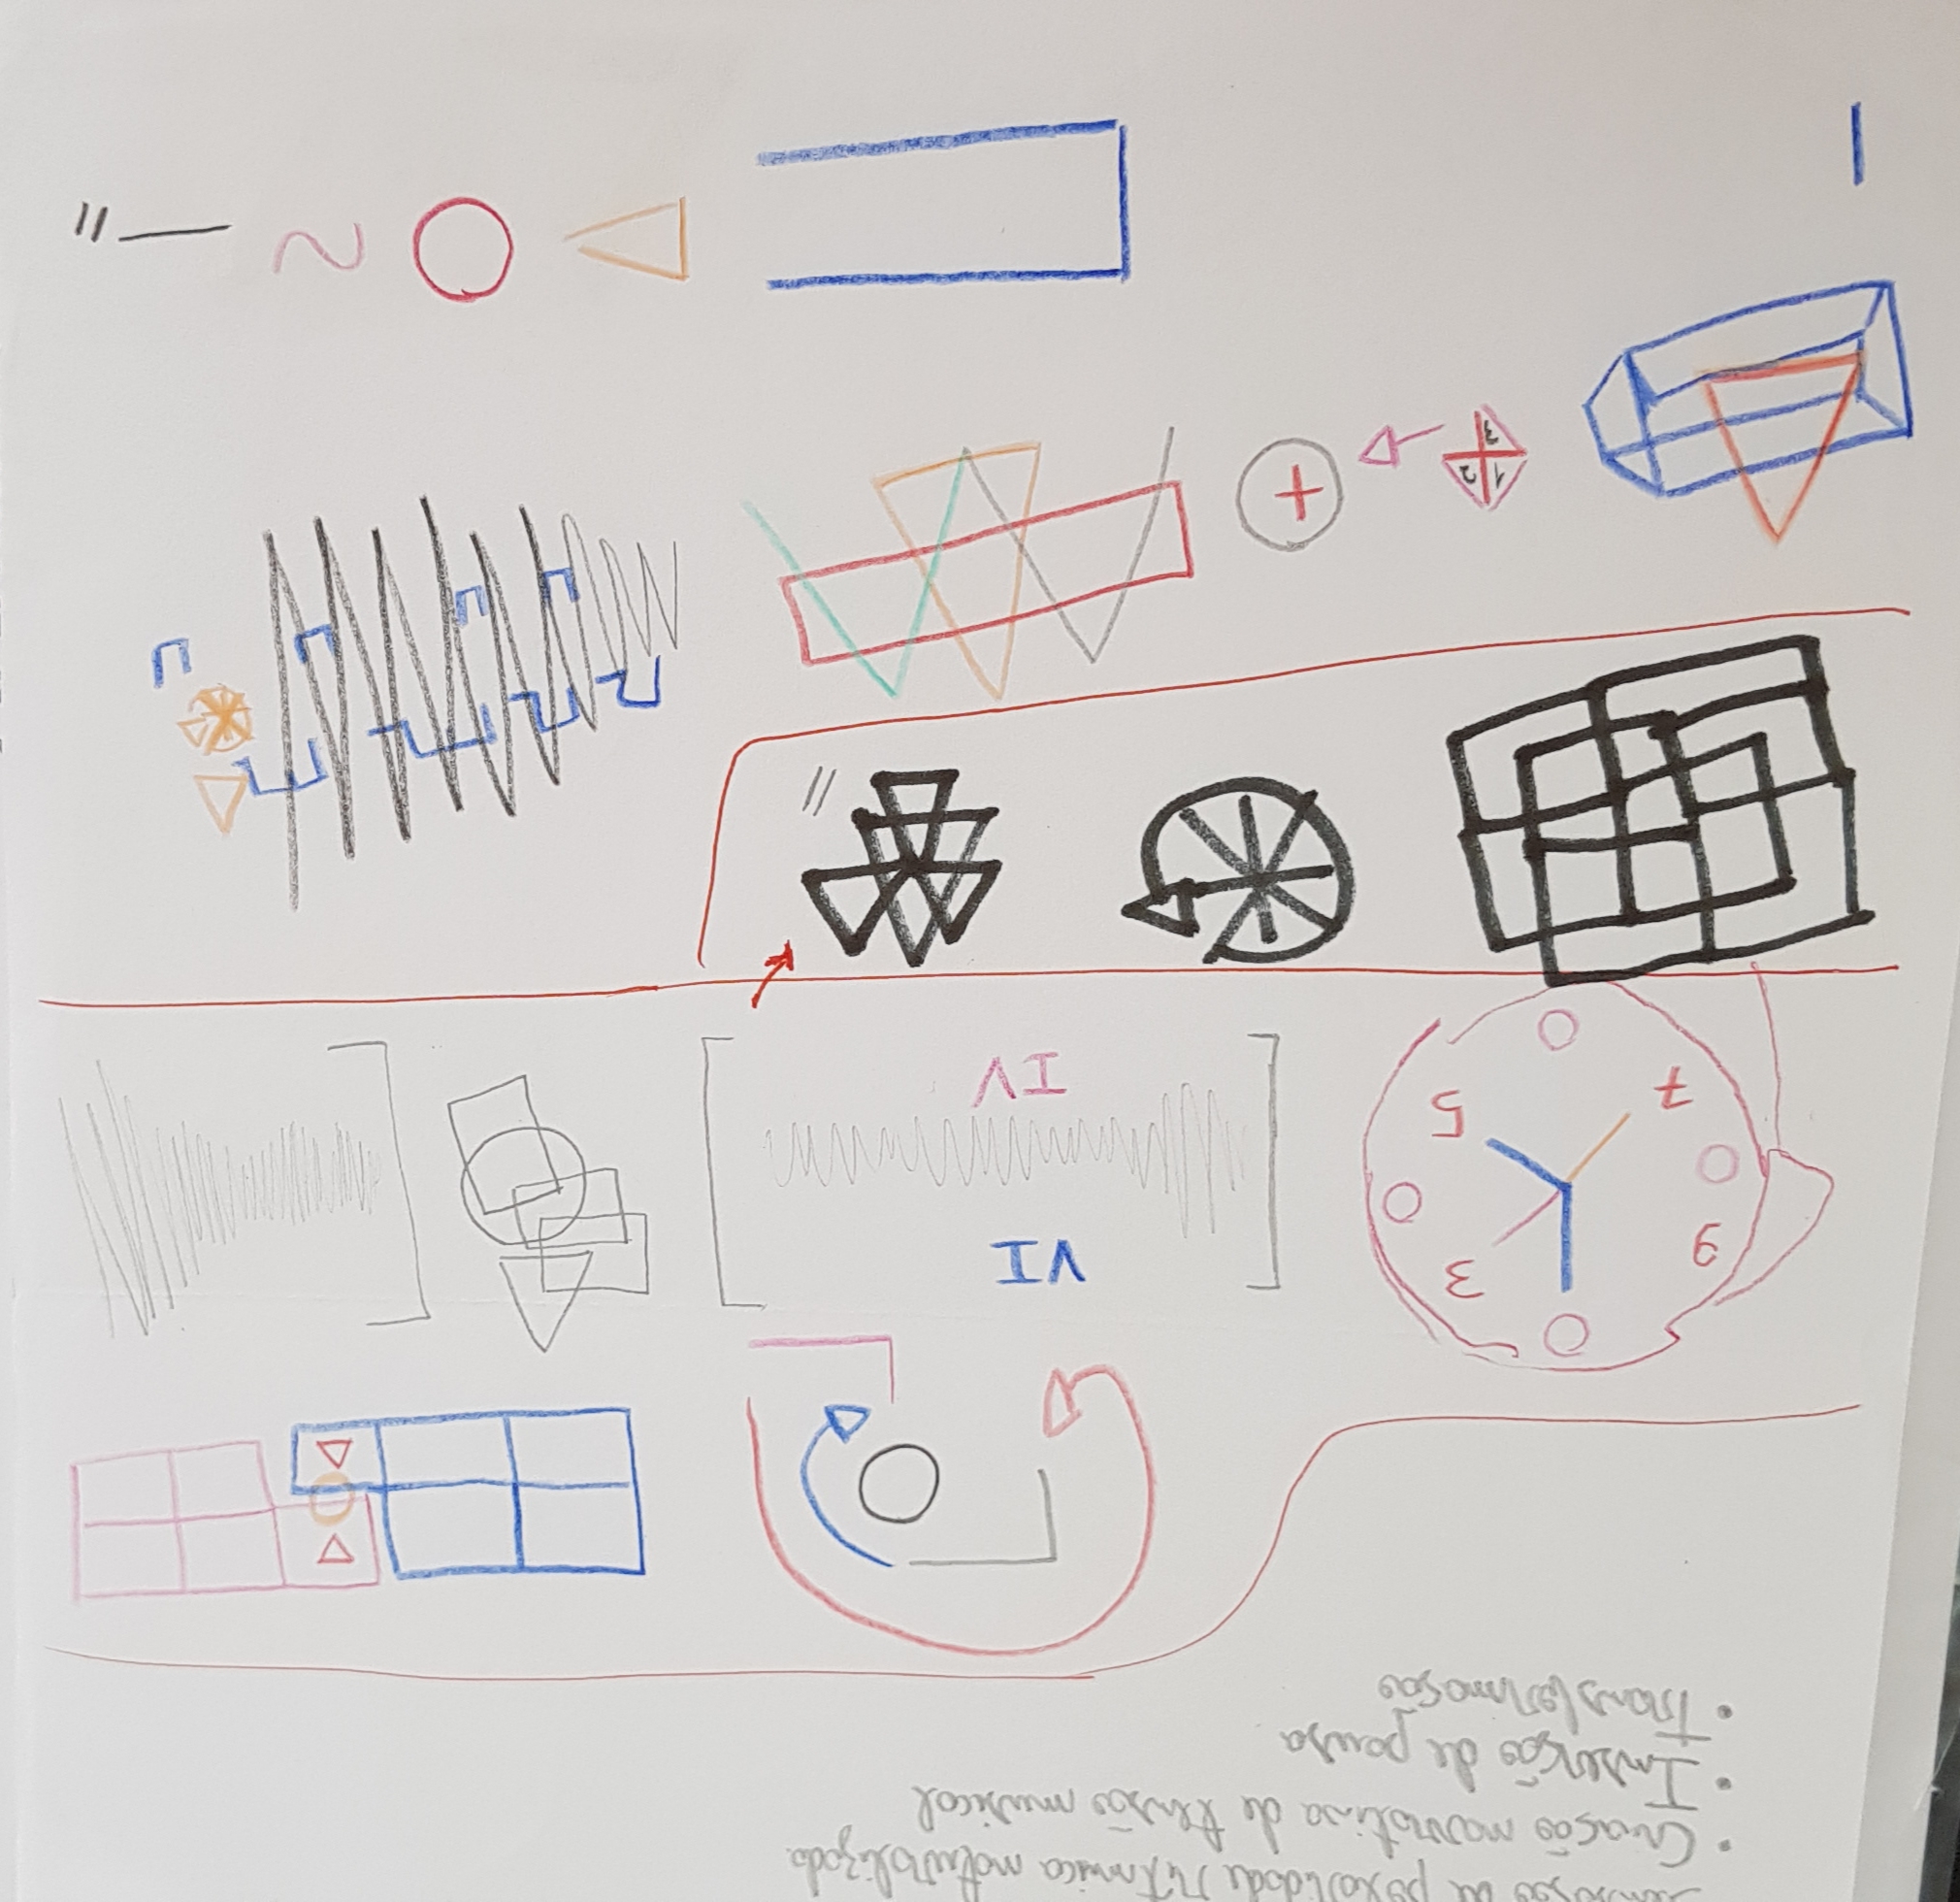 Sensação de polaridade rítmica naturalizada.
• Criação narrativa de tensão musical
• Inserção de pausa
• Transformação
9 3
7 5
VI
IV
1 2
3